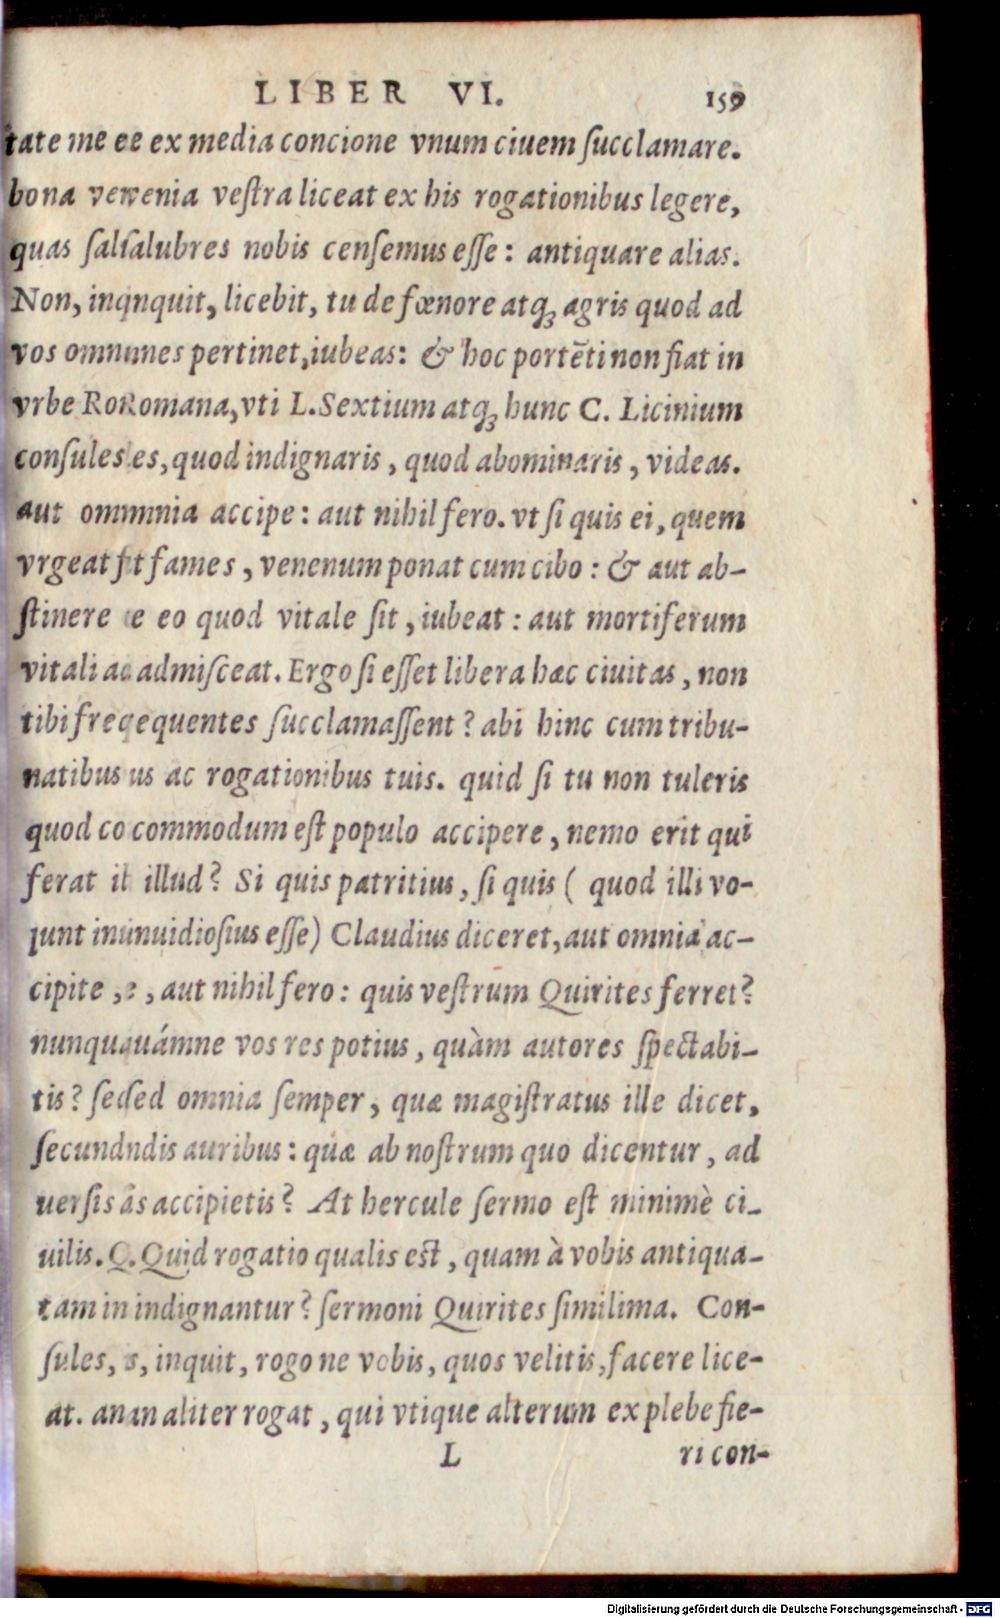 LIBER VI. 159
tate me ee ex media concione vnum ciuem ſucclamare.
bona vewenia veſtra liceat ex his rogationibus legere,
quas ſalſalubres nobis cenſemus eſſe: antiquare alias.
Non, inqnquit, licebit, tu de fœnore atqꝫ agris quod ad
vos omnmnes pertinet, iubeas: & hoc portēti non fiat in
vrbe RoRomana, vti L. Sextium atqꝫ hunc C. Licinium
conſules es, quod indignaris, quod abominaris, videas.
aut ommmnia accipe: aut nihil fero. vt ſi quis ei, quem
vrgeat ſt fames, venenum ponat cum cibo: & aut ab-
ſtinere e eo quod vitale ſit, iubeat: aut mortiferum
vitali ac admiſceat. Ergo ſi eſſet libera hæc ciuitas, non
tibi freqequentes ſucclamaſſent? abi hinc cum tribu-
natibus us ac rogationibus tuis. quid ſi tu non tuleris
quod co commodum eſt populo accipere, nemo erit qui
ferat il illud? Si quis patritius, ſi quis ( quod illi vo-
lunt inuinuidioſius eſſe) Claudius diceret, aut omnia ac-
cipite, e, aut nihil fero: quis veſtrum Quirites ferret?
nunquauámne vos res potius, quàm autores ſpectabi-
tis? ſedſed omnia ſemper, quæ magiſtratus ille dicet,
ſecundndis auribus: quæ ab noſtrum quo dicentur, ad
uerſis as accipietis? At hercule ſermo eſt minimè ci-
uilis. Q. Quid rogatio qualis eſt, quam à vobis antiqua-
tam in indignantur? ſermoni Quirites ſimilima. Con-
ſules, s, inquit, rogo ne vobis, quos velitis, facere lice-
at. anan aliter rogat, qui vtique alterum ex plebe fie-
L ri con-
Digitalisierung gefördert durch die Deutsche Forschungsgemeinschaft - DFG